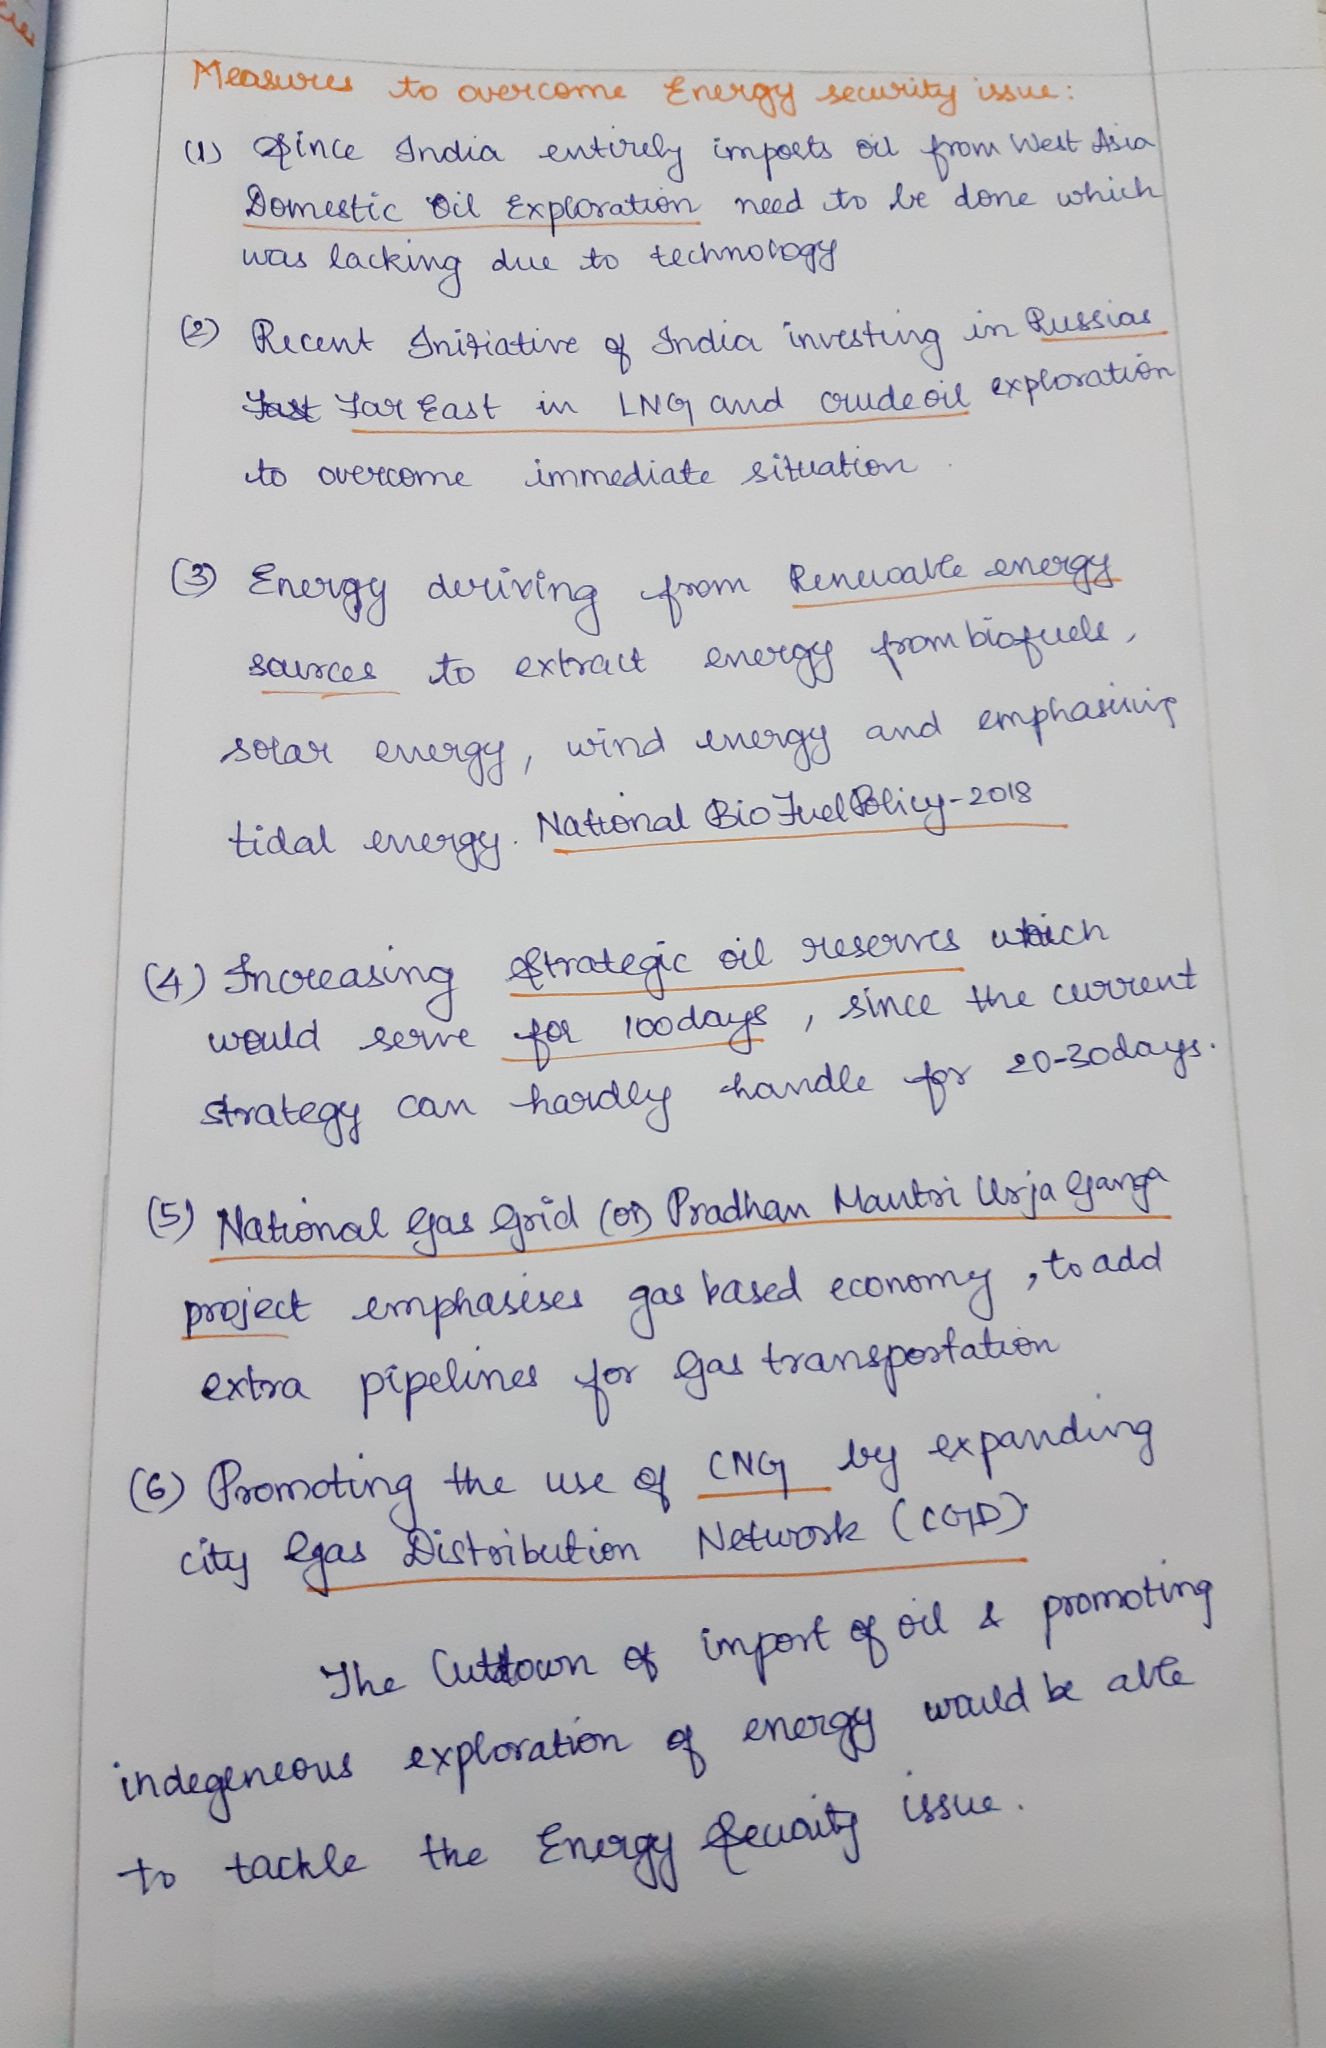 Measures to overcome Energy security issue:
(1) Since India entirely imports oil from West Asia
Domestic Oil Exploration need to be done which
was lacking due to technology
(2) Recent Initiative of India investing in Russias
Far East in LNG and crude oil exploration
to overcome immediate situation.
(3) Energy deriving from Renewable energy
sources to extract energy from biofuels,
solar energy, wind energy and emphasising
tidal energy. National Bio Fuel Policy-2018
(4) Increasing Strategic oil reserves which
would serve for 100days, since the current
strategy can hardly handle for 20-30days.
(5) National Gas Grid (or) Pradhan Mantri Urja Ganga
project emphasises gas based economy, to add
extra pipelines for gas transportation
(6) Promoting the use of CNG by expanding
city Gas Distribution Network (CGD).
The Cutdown of import of oil & promoting
indegeneous exploration of energy would be able
to tackle the Energy Security issue.